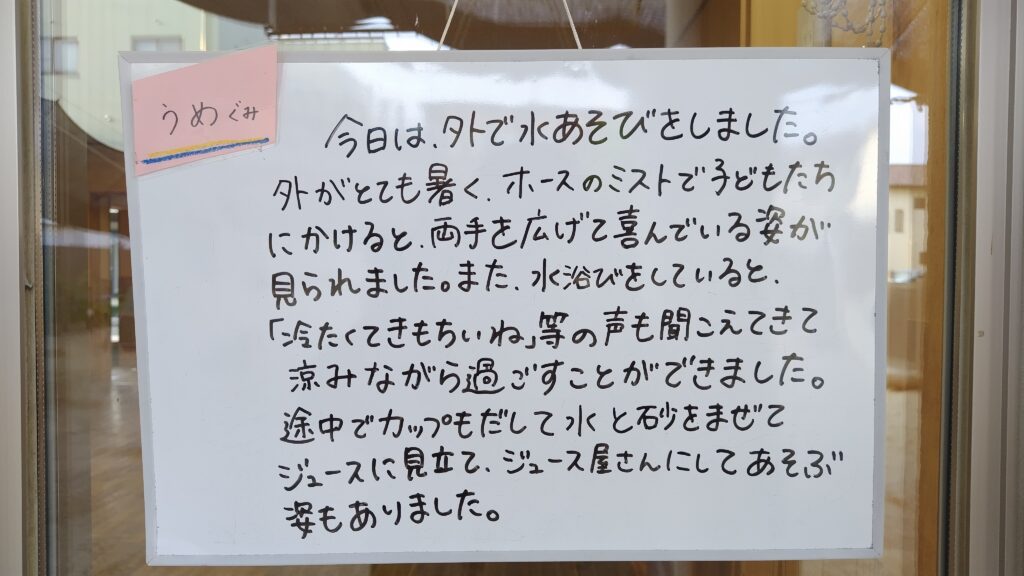 うめぐみ
今日は、外で水あそびをしました。
外がとても暑く、ホースのミストで子どもたち
にかけると、両手を広げて喜んでいる姿が
見られました。また、水浴びをしていると、
「冷たくてきもちいね」等の声も聞こえてきて
涼みながら過ごすことができました。
途中でカップもだして水と砂をまぜて
ジュースに見立て、ジュース屋さんにしてあそぶ
姿もありました。